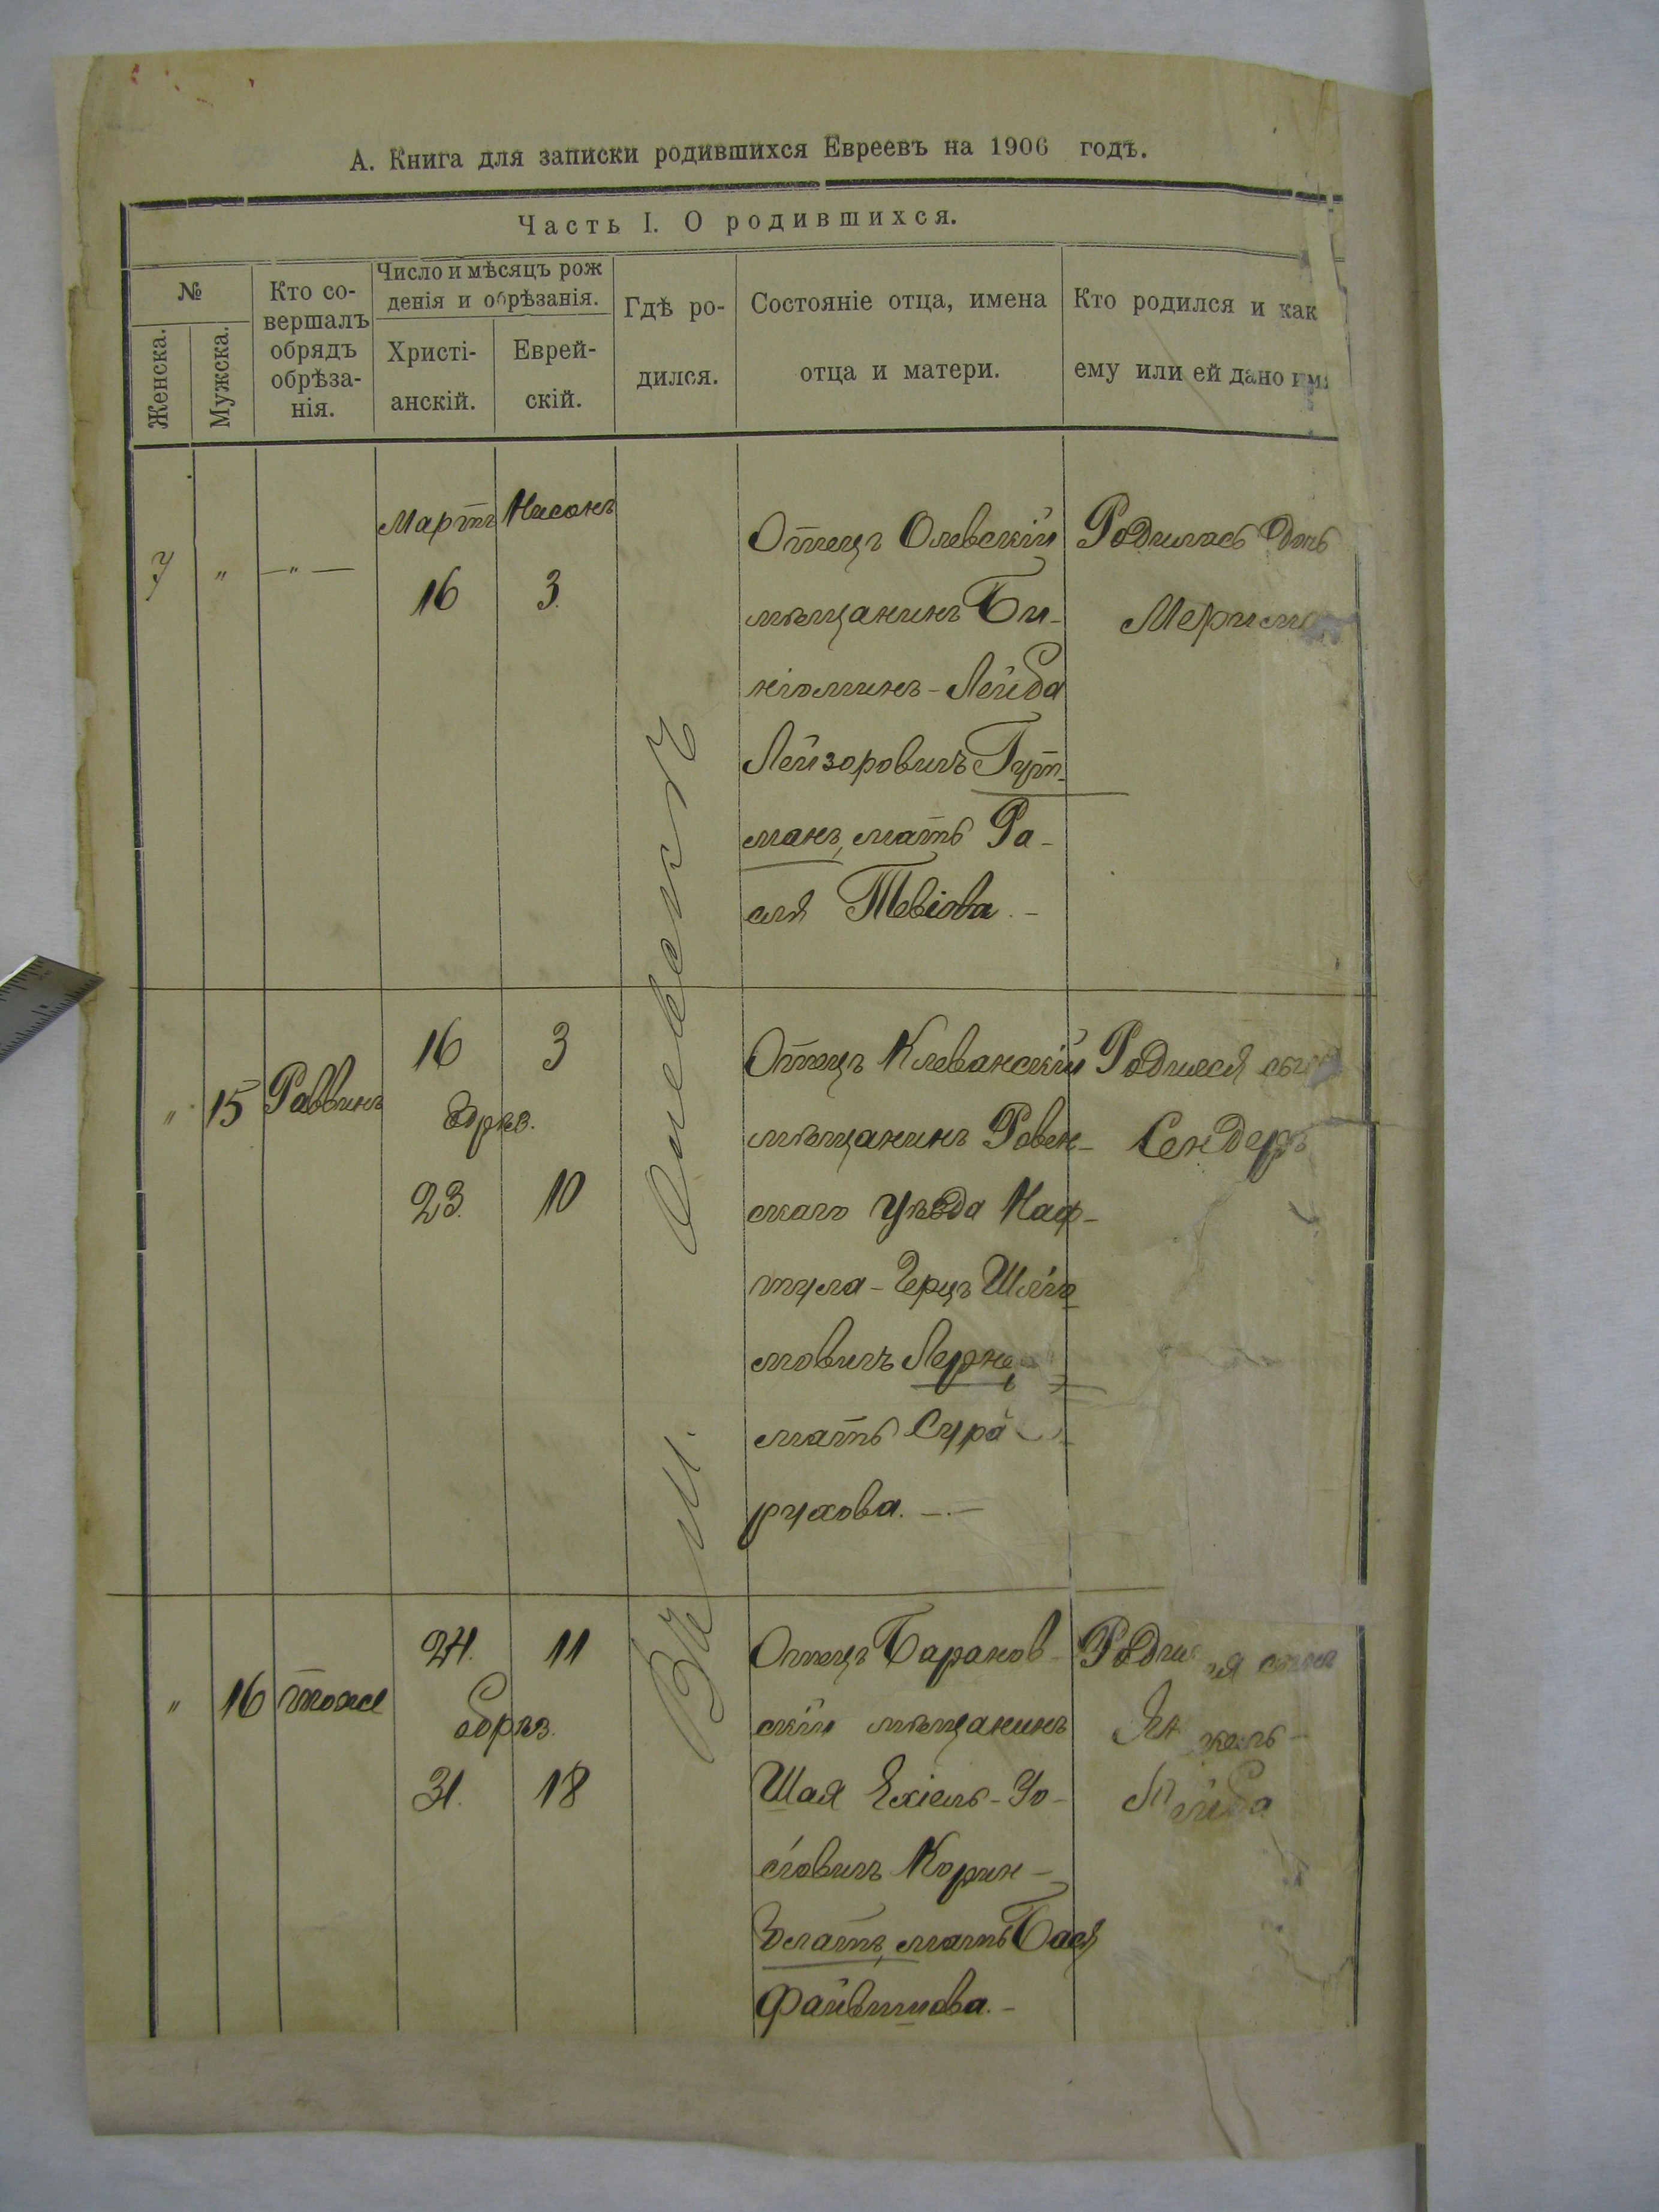 А. Книга для записки родившихся Евреевъ на 1906 годъ.
Часть I. О родившихся.
№
Женска.
Мужска.
Кто со-
вершалъ
обрядъ
обрѣза-
нія.
Число и мѣсяцъ рож
денія и обрѣзанія.
Христі-
анскій.
Еврей-
скій.
Гдѣ ро-
дился.
Состояніе отца, имена
отца и матери.
Кто родился и как
ему или ей дано имя
Въ м. Олевскъ
7 " —"—
Мартъ Нисонъ
16 3.
Отецъ Олевскій
мѣщанинъ Би-
ніоминъ-Лейба
Лейзоровичъ Гут-
манъ, мать Ра-
сля Тевіова. -
Родилась дочь
" 15 Раввинъ
16 3
Обрѣз.
23. 10
Отецъ Клеванскій
мѣщанинъ Ровен-
скаго уѣзда Наф-
тула-Герцъ Шліо
мовичъ
мать Сура
рухова. —.—
Родился сынъ
Сендеръ
" 16 тоже
24. 11
Обрѣз.
31. 18
Отецъ Баранов-
скій мѣщанинъ
Шая Ехіель-Іо-
сіовичъ Корин-
блатъ, мать Бася
Файвишова. -
Родился сынъ